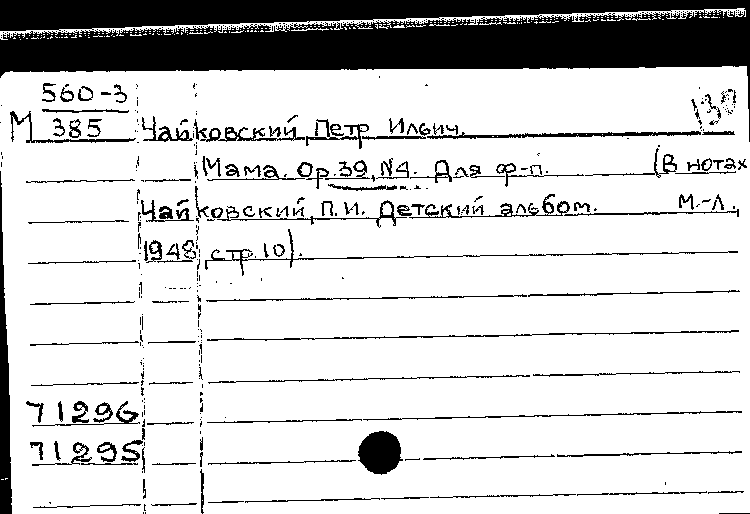 560-3
М 385 Чайковский, Петр Ильич. 130
Мама. Ор. 39, N4. Для ф-п. (В нотах
Чайковский, П.И. Детский альбом. М.-Л.,
1948, стр. 10).
71296
71295